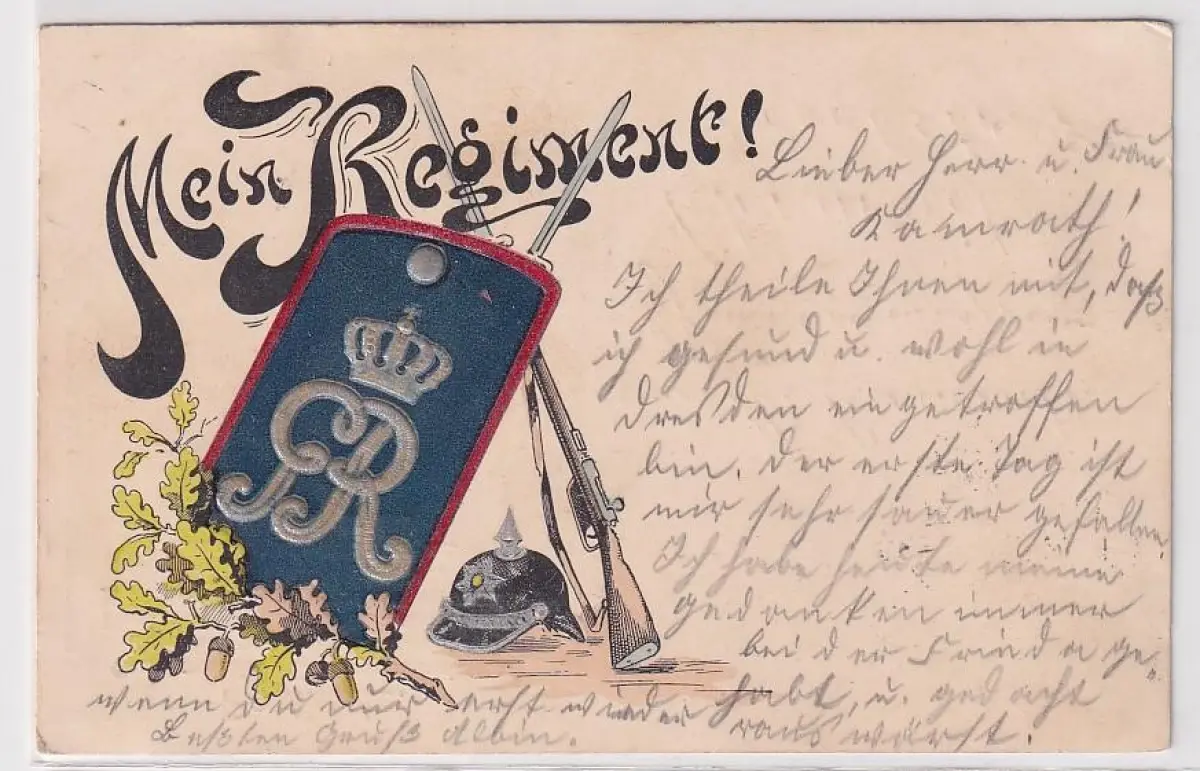 Mein Regiment!
GR
Lieber Herr u. Frau
Kamrath!
Ich theile Ihnen mit, daß
ich gesund u. wohl in
Dresden eingetroffen
bin. Der erste Tag ist
mir sehr sauer gefallen.
Ich habe heute meine
gedanken immer
bei der Frieda ge-
habt, u. gedacht
wenn du nur erst wieder
raus wärst.
Beßten Gruß Albin.